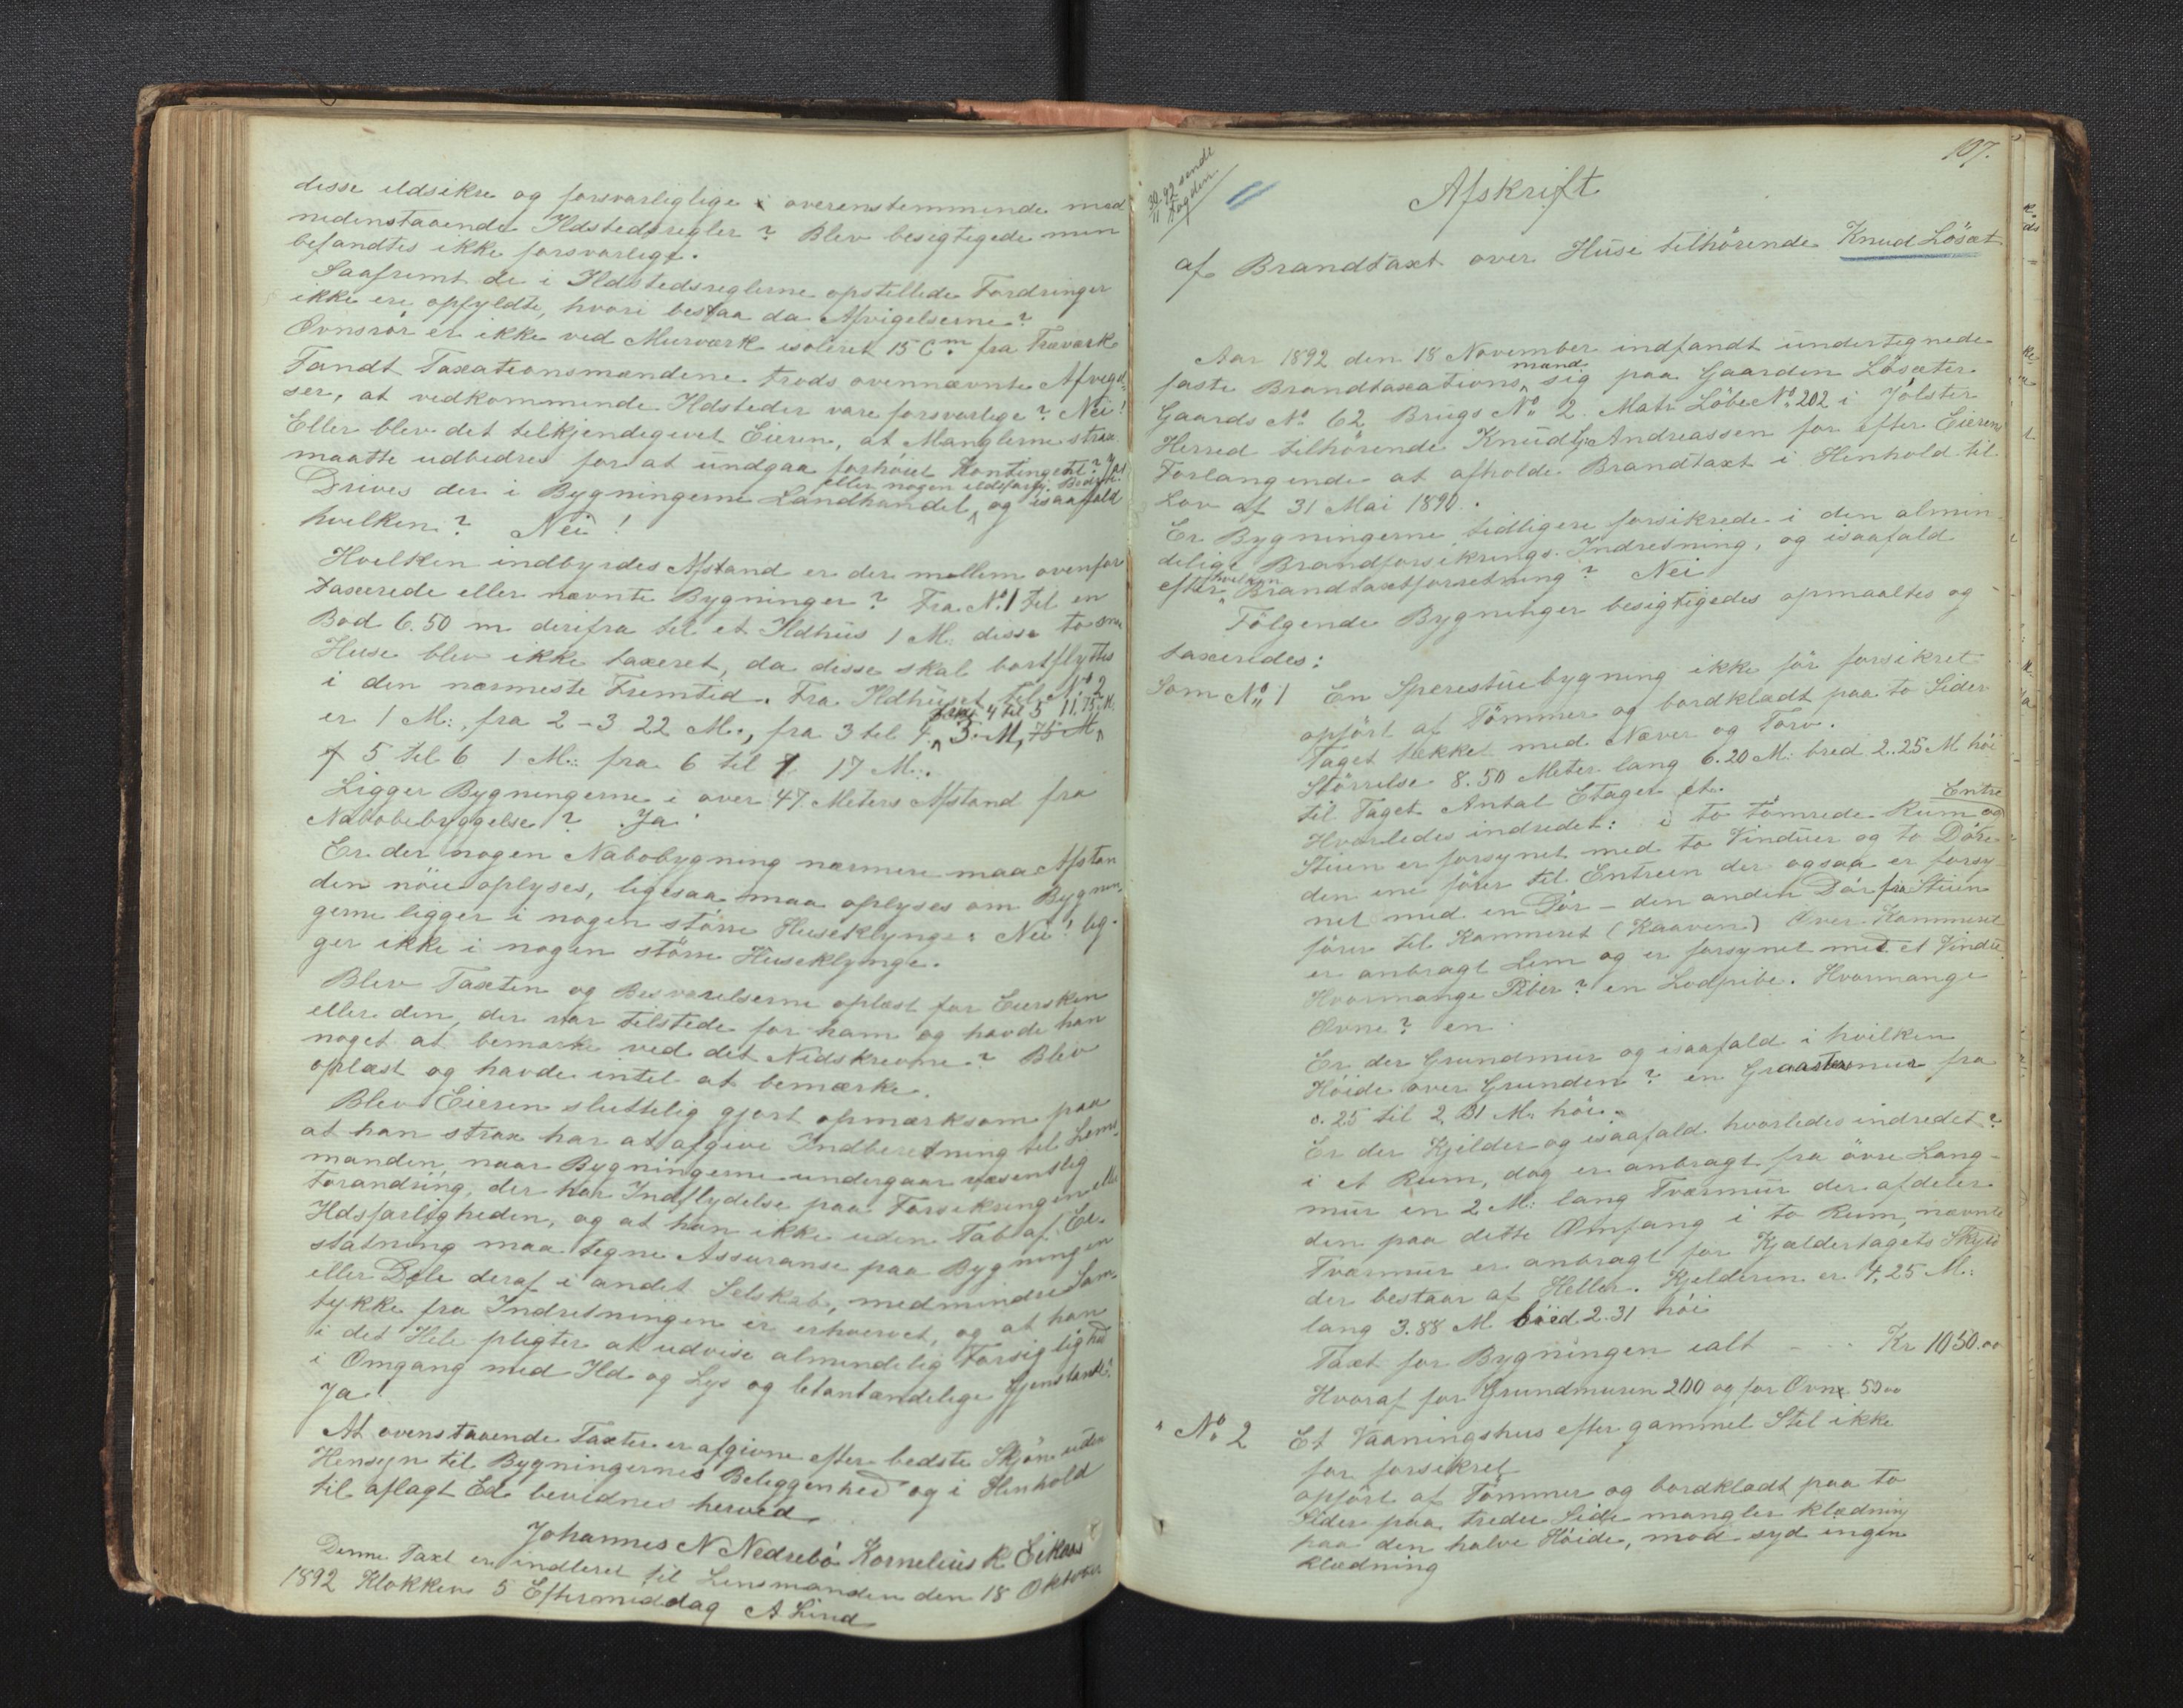 disse ildsikre og forsvarliglige i overenstemmende med
nedenstaaende Ildstedsregler? Blev besigtigede men
befandtes ikke forsvarlige.
Saafremt de i Ildstedsreglerne opstillede Fordringer
ikke ere opfyldte, hvori bestaa da Afvigelserne?
Ovnsrör er ikke ved Murværk isoleret 15 Cm. fra Træværk
Fandt Taxationsmændene trods ovennævnte Afvigel-
ser, at vedkommende Ildsteder vare forsvarlige? Nei!
Eller blev det tilkjendegivet Eieren, at Manglerne strax
maatte udbedres for at undgaa forhöiet Kontingent? Ja!
eller nogen ildsfarlig Bedrift
Drives der i Bygningerne Landhandel, og isaafald
hvilken? Nei!
Hvilken indbyrdes Afstand er der mellem ovenfor
taxerede eller nævnte Bygninger? Fra No. 1 til en
Bod 6.50 m derifra til et Ildhus 1 M. disse to smaa
Huse blev ikke taxeret, da disse skal bortflyttes
i den nærmeste Fremtid. Fra Ildhuset til No 2
fra 4 til 5 11.75 M.
er 1 M:, fra 2-3 22 M., fra 3 til 4 3 M, 75 M
f 5 til 6 1 M: fra 6 til 7 17 M:.
Ligger Bygningerne i over 47 Meters Afstand fra
Nabobebyggelse? Ja!
Er der nogen Nabobygning nærmere maa Afstan
den nöie oplyses, ligesaa maa oplyses om Bygnin-
gerne ligger i nogen större Huseklynge: Nei! lig-
ger ikke i nogen större Huseklynge.
Blev Taxten og Besvarelserne oplæst for Eiersken
eller den, der var tilstede for ham og havde han
noget at bemærke ved det Nedskrevne? Blev
oplæst og havde intet at bemærke.
Blev Eieren sluttelig gjort opmærksom paa
at han strax har at afgive Indberetning til Lens-
manden, naar Bygningerne undergaar væsentlig
Forandring, der har Indflydelse paa Forsikringen eller
Ildsfarligheden, og at han ikke uden Tab af Er-
statning maa tegne Assuranse paa Bygningen
eller Dele deraf i andet Selskab, medmindre Sam-
tykke fra Indretningen er erhvervet, og at han
i det Hele pligter at udvise almindelig Forsiglighed
i Omgang med Ild og Lys og letantændelige Gjenstande?
Ja!
At ovenstaaende Taxter er afgivne efter bedste Skjön uden
Hensyn til Bygningernes Beliggenhed og i Henhold
til aflagt Ed bevidnes herved
Johannes N Nedrebö Kornelius R Eikaas
Denne Taxt er indleret til Lensmanden den 18 Oktober
1892 Klokken 5 Eftermiddag A Lind
107.
30/11 92 sendt
Fogden.
Afskrift
af Brandtaxt over Huse tilhörende Knud Lösæt
Aar 1892 den 18 November indfandt undertegnede
mænd
faste Brandtaxations sig paa Gaarden Lösæter
Gaards No 62 Brugs No 2. Matr Löbe No 202 i Jölster
Herred tilhörende Knud G. Andreassen for efter Eierens
Forlangende at afholde Brandtaxt i Henhold til
Lov af 31 Mai 1890.
Er Bygningerne tidligere forsikrede i den almin
delige Brandforsikrings Indretning, og isaafald
hvilken
efter Brandtaxtforretning? Nei
Fölgende Bygninger besigtigedes opmaaltes og
taxeredes:
Som No 1 En Sperrestuebygning ikke för forsikret
opfört af Tömmer og bordklædt paa to Sider
Taget tækket med Næver og Torv.
Störrelse 8.50 Meter lang 6.20 M: bred 2.25 M höi
til Taget Antal Etager et.
Entre
Hvorledes indredet: i to tömrede Rum og
Stuen er forsynet med to Vinduer og to Döre
den ene förer til Entreen der ogsaa er forsy
net med en Dör - den anden Dör fra Stuen
förer til Kammeret (Kaaven) Over Kammeret
er anbragt Lem og er forsynet med et Vindue.
Hvormange Piber? en Lodpibe. Hvormange
Ovne? en
Er der Grundmur og isaafald i hvilken
Höide over Grunden? en Graastensmur fra
0.25 til 2,31 M. höi.
Er der Kjelder og isaafald hvorledes indredet?
i et Rum, dog er anbragt fra övre Lang-
mur en 2 M: lang Tværmur der afdeler
den paa dette Omfang i to Rum, nævnte
Tværmur er anbragt for Kjældertagets Skyld
der bestaar af Heller. Kjelderen er 4,25 M:
lang 3.88 M. bred 2.31 höi
Taxt for Bygningen ialt - - - Kr 1050.00
Hvoraf for Grundmuren 200 og for Ovne 50 00
" No 2 Et Vaaningshus efter gammel Stil ikke
för forsikret
opfört af Tömmer og bordklædt paa to
Sider paa tredie Side mangler klædning
paa den halve Höide, mod syd ingen
klædning